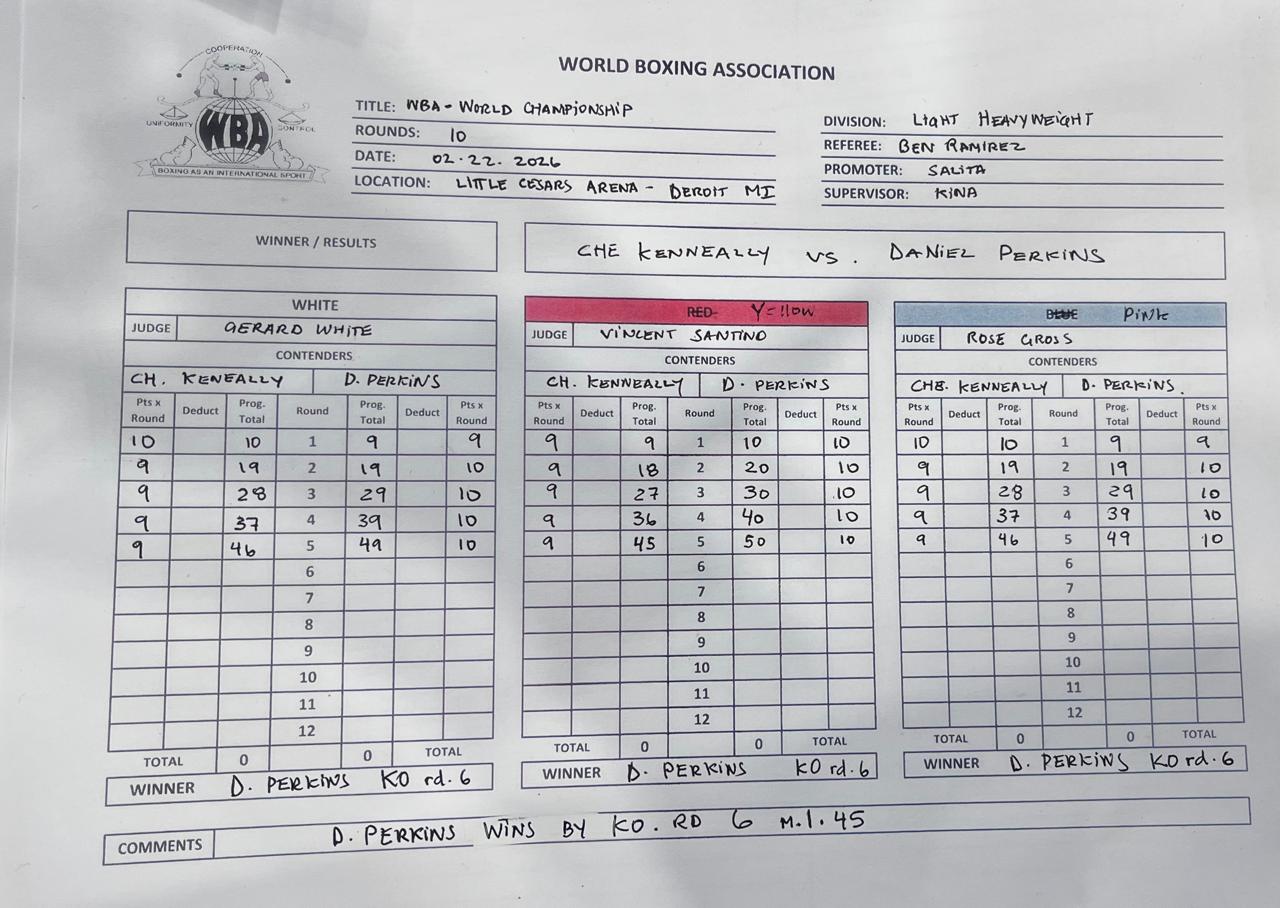 COOPERATION
UNIFORMITY
CONTROL
WBA
BOXING AS AN INTERNATIONAL SPORT
WORLD BOXING ASSOCIATION
TITLE: WBA - WORLD CHAMPIONSHIP
ROUNDS: 10
DATE: 02.22.2026
LOCATION: LITTLE CESARS ARENA - DEROIT MI
DIVISION: LIGHT HEAVYWEIGHT
REFEREE: BEN RAMIREZ
PROMOTER: SALITA
SUPERVISOR: KINA
WINNER / RESULTS
CHE KENNEALLY VS. DANIEL PERKINS
WHITE
JUDGE GERARD WHITE
CONTENDERS
CH. KENEALLY D. PERKINS
Pts x Round Deduct Prog. Total Round Prog. Total Deduct Pts x Round
10 10 1 9 9
9 19 2 19 10
9 28 3 29 10
9 37 4 39 10
9 46 5 49 10
6
7
8
9
10
11
12
TOTAL 0 0 TOTAL
WINNER D. PERKINS KO rd. 6
RED Yellow
JUDGE VINCENT SANTINO
CONTENDERS
CH. KENNEALLY D. PERKINS
Pts x Round Deduct Prog. Total Round Prog. Total Deduct Pts x Round
9 9 1 10 10
9 18 2 20 10
9 27 3 30 10
9 36 4 40 10
9 45 5 50 10
6
7
8
9
10
11
12
TOTAL 0 0 TOTAL
WINNER D. PERKINS KO rd. 6
BLUE PiNk
JUDGE ROSE GROSS
CONTENDERS
CHE. KENNEALLY D. PERKINS.
Pts x Round Deduct Prog. Total Round Prog. Total Deduct Pts x Round
10 10 1 9 9
9 19 2 19 10
9 28 3 29 10
9 37 4 39 10
9 46 5 49 10
6
7
8
9
10
11
12
TOTAL 0 0 TOTAL
WINNER D. PERKINS KO rd. 6
COMMENTS D. PERKINS WINS BY KO. RD 6 M.1.45